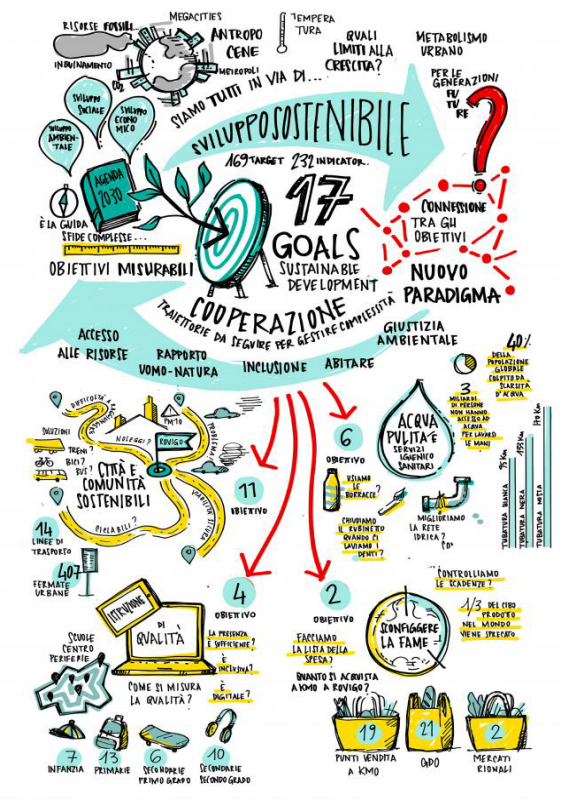 RISORSE FOSSILI..
MEGACITIES
ANTROPO
CENE
INQUINAMENTO
CO2
METROPOLI
TEMPERA
TURA
QUALI
LIMITI ALLA
CRESCITA?
METABOLISMO
URBANO
PER LE
GENERAZIONI
FU
TU
RE
?
SIAMO TUTTI IN VIA DI...
SVILUPPO SOSTENIBILE
SVILUPPO
SOCIALE
SVILUPPO
ECONO
MICO
SVILUPPO
AMBIEN-
TALE
AGENDA
2030
È LA GUIDA
SFIDE COMPLESSE...
OBIETTIVI MISURABILI
169 TARGET 232 INDICATOR.
17
GOALS
SUSTAINABLE
DEVELOPMENT
CONNESSIONE
TRA GLI
OBIETTIVI
NUOVO
PARADIGMA
COOPERAZIONE
TRAIETTORIE DA SEGUIRE PER GESTIRE COMPLESSITÀ
ACCESSO
ALLE RISORSE
RAPPORTO
UOMO-NATURA
INCLUSIONE
ABITARE
GIUSTIZIA
AMBIENTALE
40%
DELLA
POPOLAZIONE
GLOBALE
COLPITO DA
SCARSITÀ
D'ACQUA
3
MILIARDI
DI PERSONE
NON HANNO
ACCESSO AD
ACQUA
PER LAVARSI
LE MANI
ACQUA
PULITA E
SERVIZI
IGIENICO
SANITARI
6
OBIETTIVO
USIAMO
LE
BORRACCE?
CHIUDIAMO
IL RUBINETTO
QUANDO CI
LAVIAMO I
DENTI?
MIGLIORIAMO
LA RETE
IDRICA?
TUBATURA BIANCA
95 KM
TUBATURA NERA
155 KM
TUBATURA MISTA
170 KM
SOLUZIONI
TRENI?
BICI?
BUS?
NOLEGGI?
PM10
ROVIGO
CITTÀ E
COMUNITÀ
SOSTENIBILI
CICLABILI?
14
LINEE DI
TRASPORTO
407
FERMATE
URBANE
11
OBIETTIVO
4
OBIETTIVO
ISTRUZIONE
DI
QUALITÀ
LA PRESENZA
È SUFFICIENTE?
È
INCLUSIVA?
È
DIGITALE?
SCUOLE
CENTRO
PERIFERIE
COME SI MISURA
LA QUALITÀ?
7
INFANZIA
13
PRIMARIE
6
SECONDARIE
PRIMO GRADO
10
SECONDARIE
SECONDO GRADO
2
OBIETTIVO
CONTROLLIAMO
LE SCADENZE?
SCONFIGGERE
LA FAME
1/3 DEL CIBO
PRODOTTO
NEL MONDO
VIENE SPRECATO
FACCIAMO
LA LISTA DELLA
SPESA?
QUANTO SI ACQUISTA
A KM0 A ROVIGO?
19
PUNTI VENDITA
A KM0
21
GDO
2
MERCATI
RIONALI